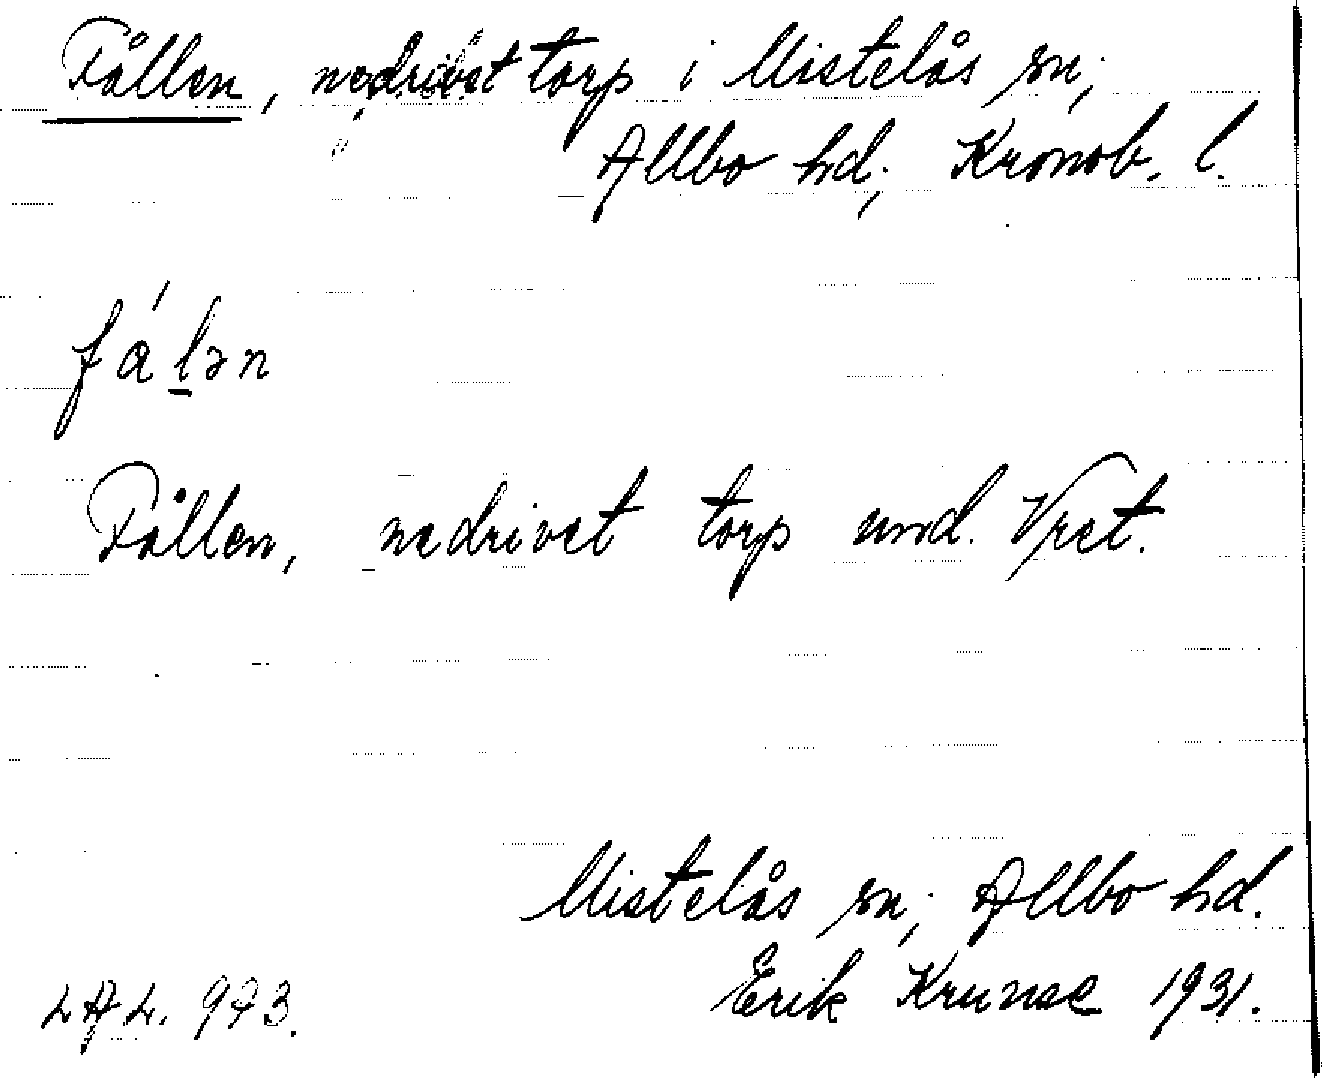 Fållen, nedrivet torp i Mistelås sn;
Allbo hd; Kronob. l.
fálən
Fållen, nedrivet torp und. Vret.
Mistelås sn; Allbo hd.
LAL. 973. Erik Krunse 1931.